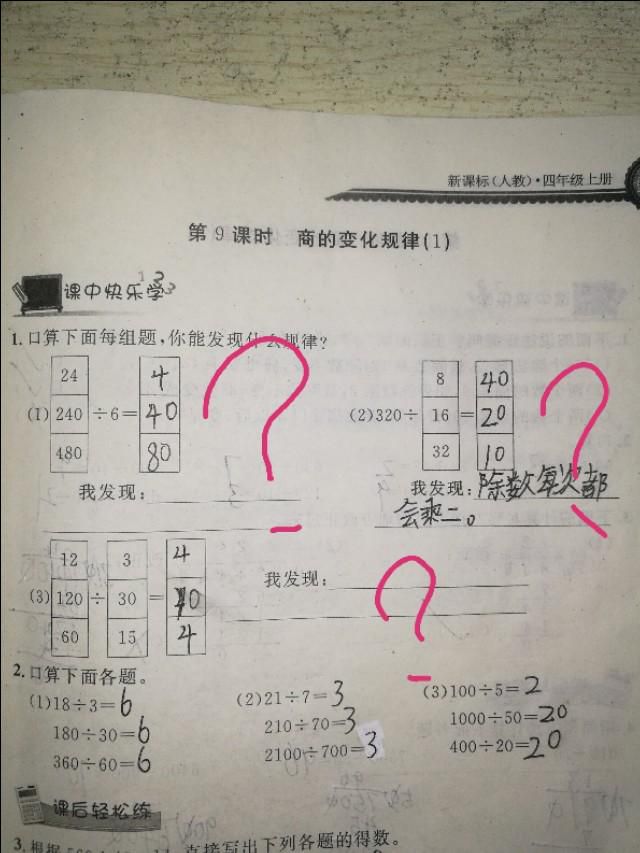 新课标(人教)·四年级上册
第9课时 商的变化规律(1)
课中快乐学
1.口算下面每组题,你能发现什么规律?
24 4
(1) 240 ÷6= 40
480 80
8 40
(2)320÷ 16 = 20
32 10
我发现:
我发现:除数每次都
会乘二。
12 3 4
(3) 120 ÷ 30 = 10
60 15 4
我发现:
2.口算下面各题。
(1)18÷3=6 (2)21÷7=3 (3)100÷5=2
180÷30=6 210÷70=3 1000÷50=20
360÷60=6 2100÷700=3 400÷20=20
课后轻松练
直接写出下列各题的得数。